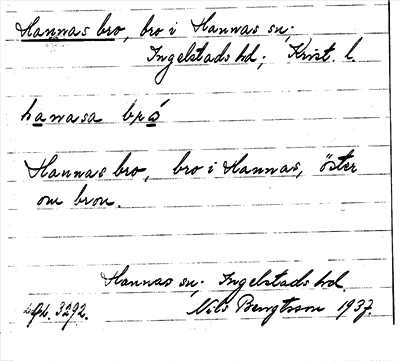 Hannas bro, bro i Hannas sn;
Ingelstads hd; Krist. l.
hanasa bro
Hannas bro, bro i Hannas, öster
om bron.
Hannas sn; Ingelstads hd
3292. Nils Bengtsson 1937.